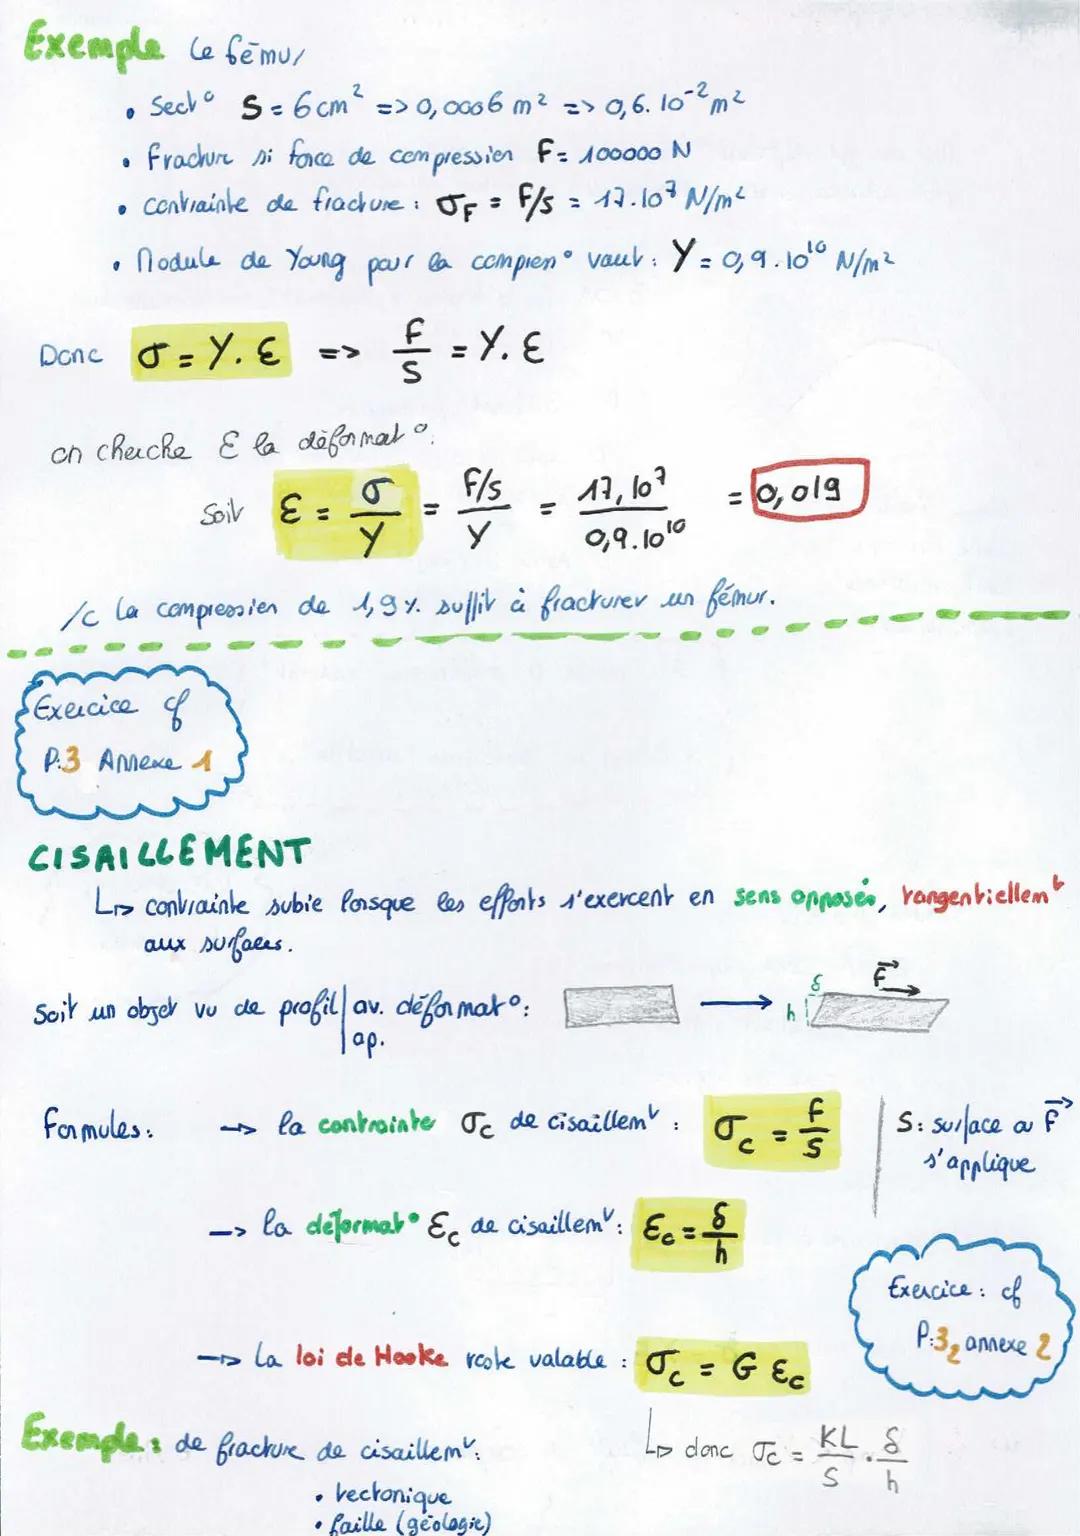 Exemple Le fémur
• Sect° S = 6 cm² => 0,0006 m² => 0,6. 10⁻² m²
• Fracture si force de compression F = 100000 N
• contrainte de fracture : σF = F/S = 17.10⁷ N/m²
• Module de Young pour la compren° vaut : Y = 0,9.10¹⁰ N/m²
Donc σ = Y. ε => F/S = Y. ε
on cherche ε la déformat°:
Soit ε = σ/Y = F/S/Y = 17,10⁷/0,9.10¹⁰ = 0,019
/c la compression de 1,9 %. suffit à fracturer un fémur.
Exercice cf
P.3 Annexe 1
CISAILLEMENT
↳ contrainte subie lorsque les efforts s'exercent en sens opposés, tangentiellemᵗ
aux surfaces.
Soit un objet vu de profil | av. déformat°:
ap.
δ F
h
Formules: → la contrainte σc de cisaillemᵗ : σc = F/S
S: surface où F
s'applique
→ la déformat° εc de cisaillemᵗ: εc = δ/h
Exercice : cf
P.3, annexe 2
→ La loi de Hooke reste valable : σc = G εc
Exemple : de fracture de cisaillemᵗ:
↳ donc σc = KL/S . δ/h
• tectonique
• faille (géologie)